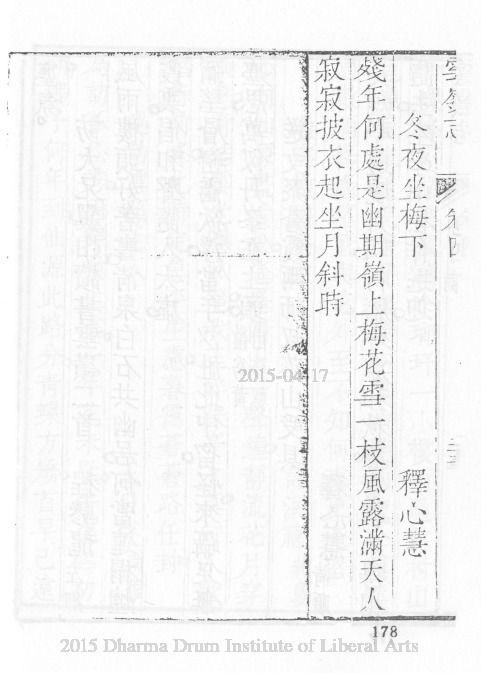 卷四
冬夜坐梅下
釋心慧
殘年何處是幽期嶺上梅花雪一枝風露滿天人
寂寂披衣起坐月斜時
2015-04-17
178
2015 Dharma Drum Institute of Liberal Arts